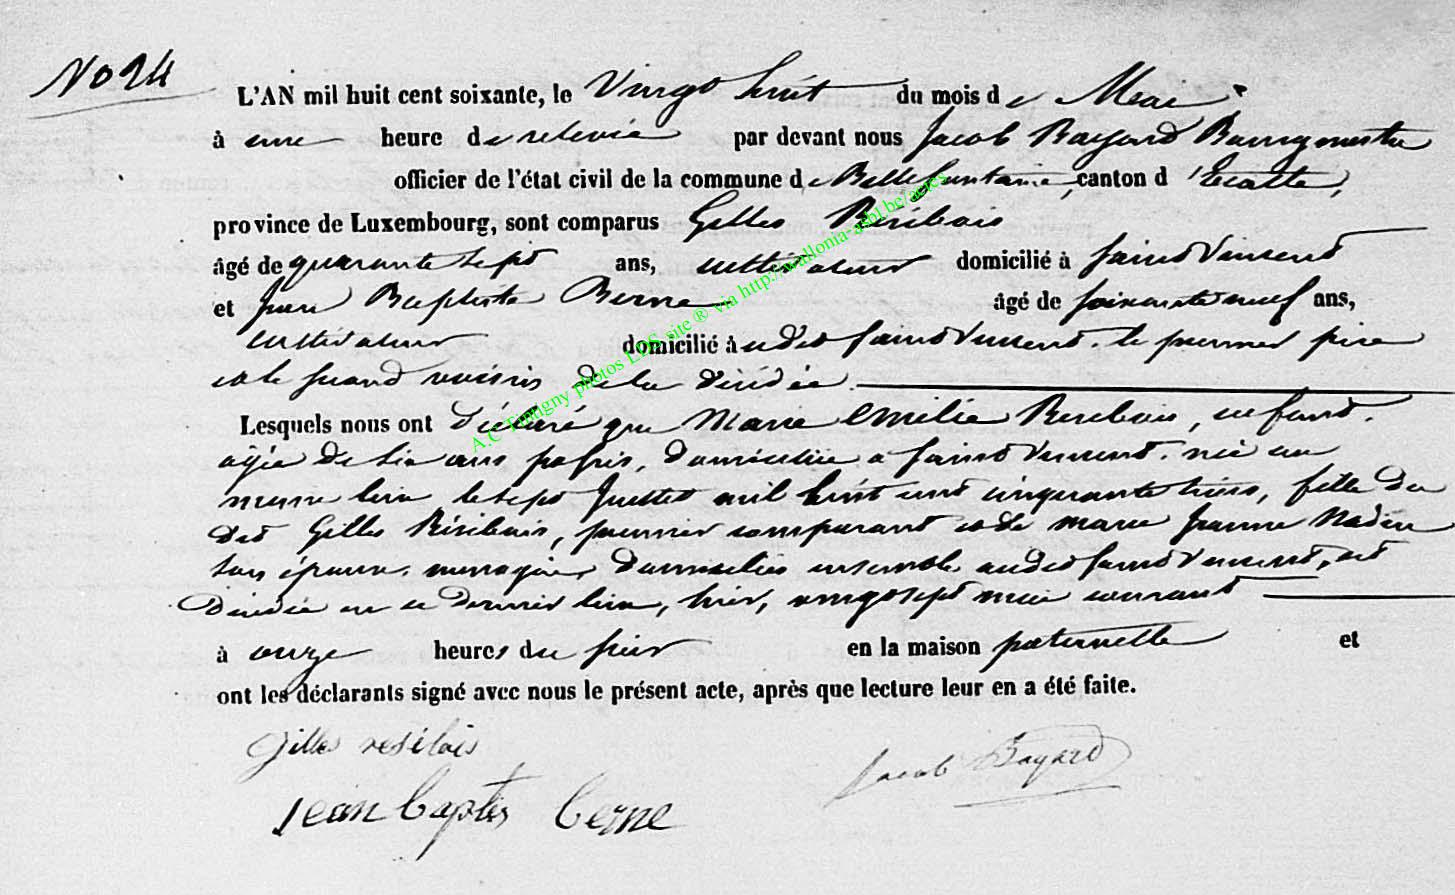 No 24
L'AN mil huit cent soixante, le Vingt huit du mois de Mai
à une heure de relevée par devant nous Jacob Bayard Bourgmestre
officier de l'état civil de la commune de Bellefontaine, canton d'Etalle,
province de Luxembourg, sont comparus Gilles Résibois
âgé de quarante sept ans, cultivateur domicilié à Saint Vincent
et Jean Baptiste Berne âgé de soixante neuf ans,
cultivateur domicilié à udit Saint Vincent. le premier père
et le second voisin de la décédée
Lesquels nous ont déclaré que Marie Emilie Résibois, enfant,
agée de six ans passés, domiciliée a Saint Vincent. née au
même lieu le sept Juillet mil huit cent cinquante trois, fille du
dit Gilles Résibois, premier comparant et de marie Jeanne
son épouse, ménagère, domiciliés ensemble audit Saint Vincent, est
décédée en ce dernier lieu, hier, vingt sept mai courant
à onze heures du soir en la maison paternelle et
ont les déclarants signé avec nous le présent acte, après que lecture leur en a été faite.
gilles resibois
Jacob Bayard
jean baptis berne
A.C Tintigny photos LDS site ® via http://wallonia-asbl.be/actes